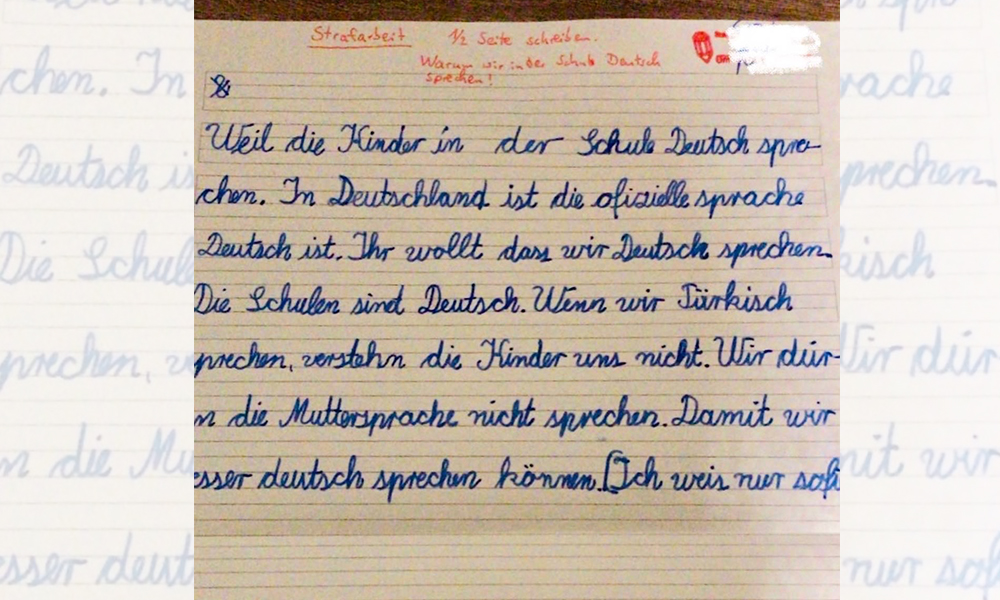 Strafarbeit 1/2 Seite schreiben.
Warum wir in der Schule Deutsch
sprechen!
Weil die Kinder in der Schule Deutsch spre-
chen. In Deutschland ist die ofizielle sprache
Deutsch ist. Ihr wollt dass wir Deutsch sprechen.
Die Schulen sind Deutsch. Wenn wir Türkisch
prechen, verstehn die Kinder uns nicht. Wir dür-
n die Muttersprache nicht sprechen. Damit wir
esser deutsch sprechen können. [Ich weis nur